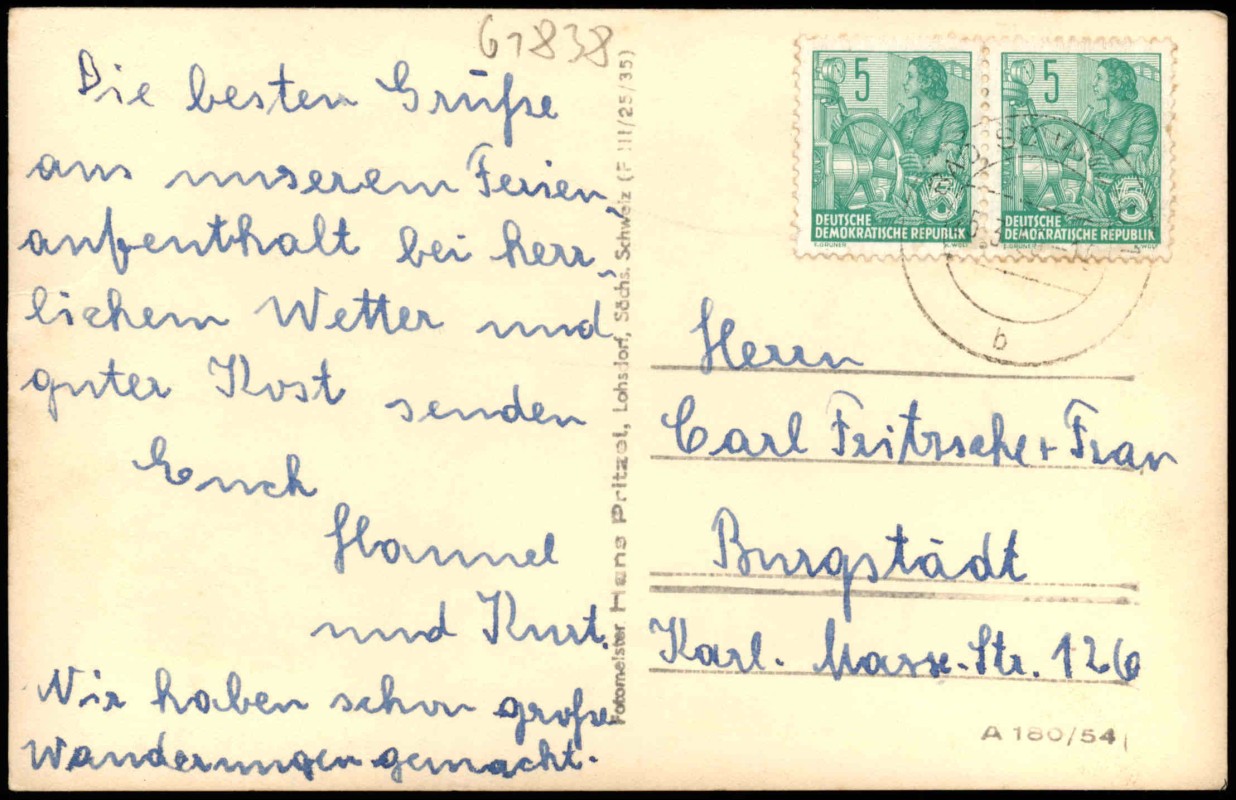 61838
Die besten Grüße
aus unserem Ferien-
aufenthalt bei herr-
lichem Wetter und
guter Kost senden
Euch
Hannel
und Kurt.
Wir haben schon große
Wanderungen gemacht.
Fotomeister Hans Pritzel, Lohsdorf, Sächs. Schweiz (F III/25/35)
5
DEUTSCHE
DEMOKRATISCHE REPUBLIK
E.GRUNER K.WOLF
5
5
DEUTSCHE
DEMOKRATISCHE REPUBLIK
E.GRUNER K.WOLF
5
BAD SCHA
b
Herrn
Carl Fritzsche + Frau
Burgstädt
Karl-Marx-Str. 126
A 180/54